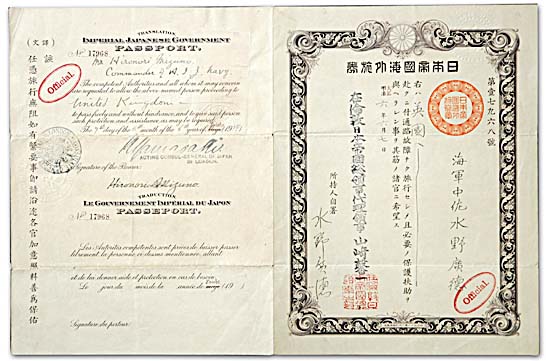 日本帝國海外旅券
第壹七九六八號
海軍中佐水野廣德
右ハ英國ヘ
赴クニ付通路故障ナク旅行セシメ且必要ノ保護扶助ヲ
與ヘラレン事ヲ其筋ノ諸官ニ希望ス
六年 月七日
日本帝國總領事代理領事 山崎馨一
所持人自署
水野廣德
Official.
(譯文)
護
任憑旅行無阻如有緊要事即請沿途各官加意照料善為保佑
TRANSLATION
IMPERIAL JAPANESE GOVERNMENT
PASSPORT.
No 17968
Official.
Mr Hironori Mizuno,
Commander of H. I. J. Navy.
The competent Authorities and all whom it may concern
are requested to allow the above named person proceeding to
United Kingdom
to pass freely and without hindrance, and to give said person
such protection and assistance as may be required.
The 7th day of the month of the 6th year of
ACTING CONSUL-GENERAL OF JAPAN
IN LONDON.
Signature of the Bearer:
Hironori Mizuno.
TRADUCTION
LE GOUVERNEMENT IMPÉRIAL DU JAPON
PASSEPORT.
No 17968
Les Autorités compétentes sont priées de laisser passer
librement la personne ci-dessus mentionnée, allant
et de lui donner aide et protection en cas de besoin.
Le jour du mois de la année de
Signature du porteur: